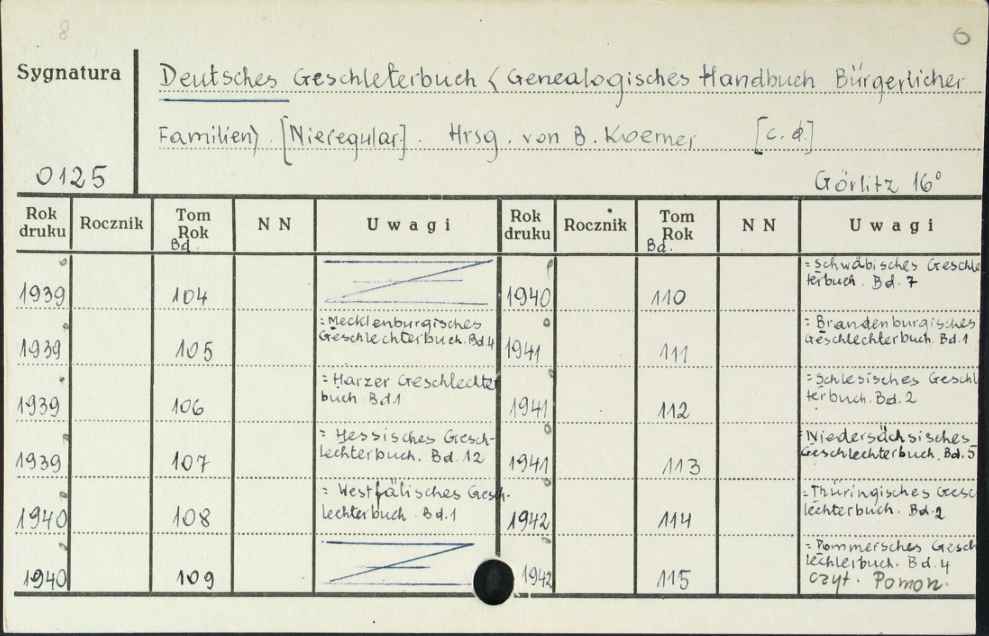 8 6
Sygnatura
Deutsches Geschleterbuch < Genealogisches Handbuch Bürgerlicher
Familien>. [Nieregular]. Hrsg. von B. Koerner [c.d.]
0125
Görlitz 16°
Rok druku Rocznik Tom Rok Bd. N N Uwagi Rok druku Rocznik Tom Rok Bd. N N Uwagi
1939 104 1940 110 = Schwäbisches Geschle
terbuch. Bd. 7
1939 105 = Mecklenburgisches
Geschlechterbuch. Bd 4 1941 111 = Brandenburgisches
Geschlechterbuch. Bd. 1
1939 106 = Harzer Geschlechter
buch Bd. 1 1941 112 = Schlesisches Geschl
terbuch. Bd. 2
1939 107 = Hessisches Gesch-
lechterbuch. Bd. 12 1941 113 = Niedersächsisches
Geschlechterbuch. Bd. 5
1940 108 = Westfälisches Gesch-
lechterbuch. Bd. 1 1942 114 = Thüringisches Gesc
lechterbuch. Bd. 2
1940 109 1942 115 = Pommersches Gesch
lechterbuch. Bd. 4
czyt. Pomorz.